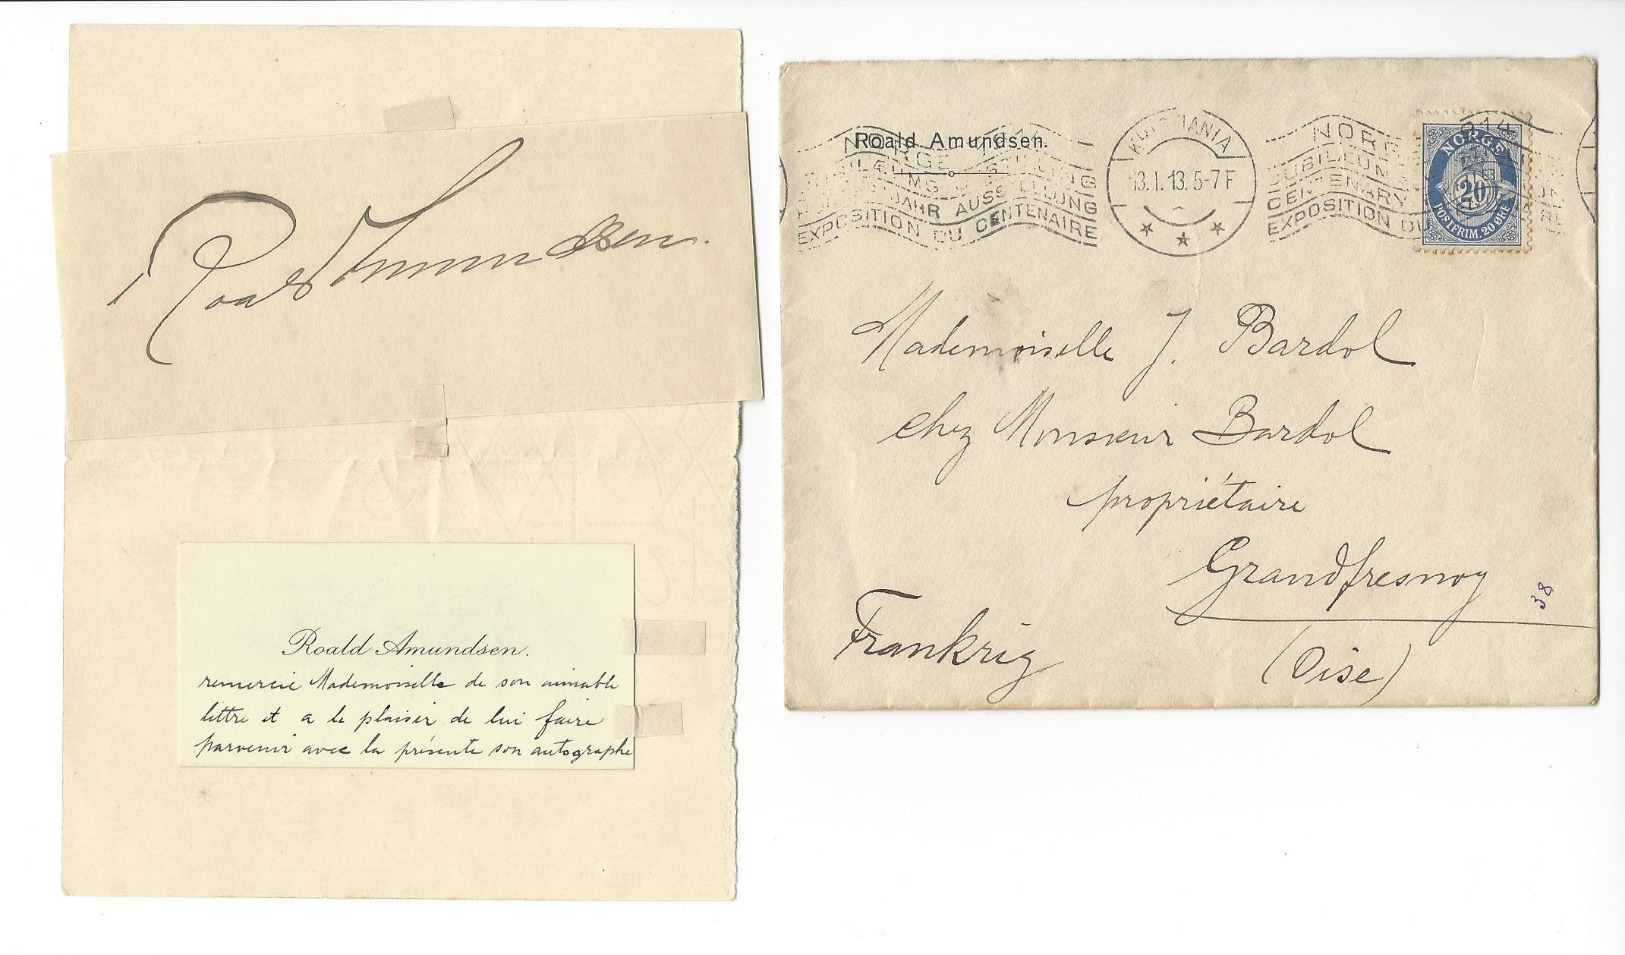 Roald Amundsen.
Roald Amundsen.
remercie Mademoiselle de son aimable
lettre et a le plaisir de lui faire
parvenir avec la présente son autographe
Roald Amundsen.
NORGE 1914
CENTENARY
EXPOSITION DU CENTENAIRE
KRISTIANIA
13.1.13.5-7F
NORGE 1914
CENTENARY
EXPOSITION DU
NORGE
20
POSTFRIM. 20 ØRE
Mademoiselle J. Bardol
chez Monsieur Bardol
propriétaire
Grandfresnoy
38
Frankrig
(Oise)